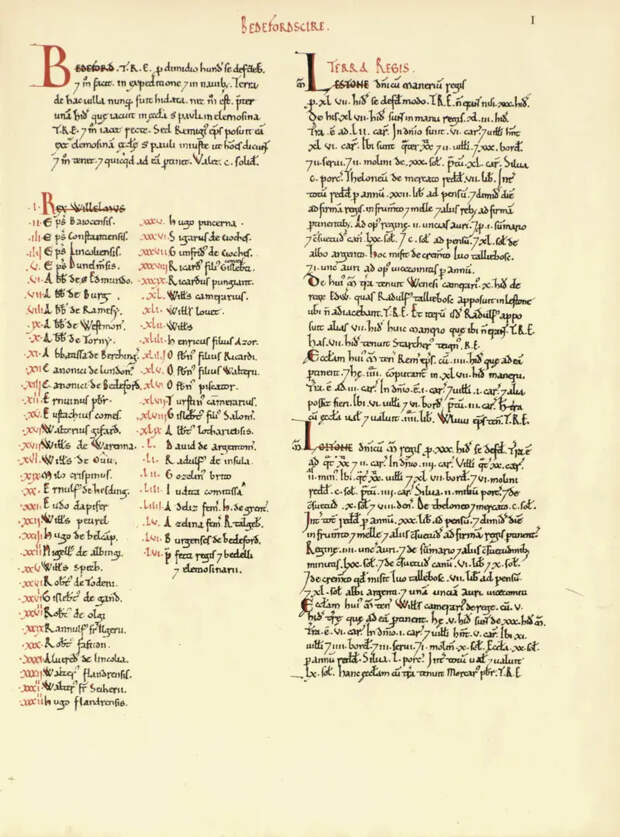 BEDEFORDSCIRE.
I
BEDEFORD . T.R.E. p dimidio hund se defdeb.
7 m facit . in expeditione 7 in nauib; . Terra
de hac uilla nunq fuit hidata . nec m est . pter
unā hid que iacuit in æccla s pauli in elemosina
T.R.E. 7 m iacet recte . Sed Remigi eps posuit eā
ext elemosinā æcclę s pauli iniuste ut hoes dicunt
7 m tenet . 7 quicqd ad eā ptinet . Valet . c . solid.
.I. REX WILLELMUS
.II. Eps Baiocensis.
.III. Eps Constantiensis.
.IIII. Eps Lincoliensis.
.V. Eps Dunelmsis.
.VI. Abb de S Edmundo.
.VII. Abb de Burg.
.VIII. Abb de Ramesy.
.IX. Abb de Westmon.
.X. Abb de Torny.
.XI. Abbatissa de Berching
.XII. Canonici de Lundon.
.XIII. Canonici de Bedeford.
.XIIII. Ernuinus pbr.
.XV. Eustachius comes.
.XVI. Walterius gifard.
.XVII. Wills de Warenna.
.XVIII. Wills de Ow.
.XIX. Milo crispinus.
.XX. Ernulf de hesding.
.XXI. Eudo dapifer
.XXII. Wills peurel
.XXIII. Hugo de belcāp.
.XXIIII. Nigell de albingi
.XXV. Wills spech.
.XXVI. Robt de Todeni.
.XXVII. Gislebt de gand.
.XXVIII. Robt de olgi
.XXIX. Rannulf fr Ilgerii.
.XXX. Robt fafiton.
.XXXI. Alured de lincolia.
.XXXII. Walter flandrensis.
.XXXIII. Walter fr Seiherii.
.XXXIIII. Hugo flandrensis.
.XXXV. Hugo pincerna.
.XXXVI. Sigarus de Cioches.
.XXXVII. Gunfrid de Cioches.
.XXXVIII. Ricard filius Gislebti.
.XXXIX. Ricardus pungiant.
.XL. Wills camerarius.
.XLI. Wills Louet.
.XLII. Wills
.XLIII. Henricus filius Azor.
.XLIIII. Osbn filius Ricardi.
.XLV. Osbn filius Walterii.
.XLVI. Osbn piscator.
.XLVII. Turstin camerarius.
.XLVIII. Gislebt filius Salomonis.
.XLIX. Albt lothariensis.
.L. David de argentom.
.LI. Radulf de insula.
.LII. Gozelin brito
.LIII. Judita comitissa
.LIIII. Adeliz fem h. de grent.
.LV. Azelina fem R. tailgeb.
.LVI. Burgenses de bedeford.
.LVII. pfecti regis 7 bedelli
7 elemosinarii.
TERRA REGIS.
LESTONE dnicū maneriū regis
p . XL.VII. hid se defd modo . T.R.E. n erat nisi .XXX. hid.
De his .XL.VII. hid sunt in manu regis .XL.III. hidę
Tra . ē ad .LII. car . In dnio sunt .VI. car . 7 uilli hnt
XL.VI. car . Ibi sunt quater XX 7 II. uilli . 7 XXX. bord.
7 II. serui . 7 II. molini de .XXX. sol . ptū . XL. car . Silua
c . porc . Theloneū de mercato redd .VII. lib . Int
totū redd p annū .XXII. lib ad pensū . 7 dimid diē
ad firmā regis . in frumto 7 melle 7 aliis reb; ad firmā
ptinentib; . Ad op reginę .II. uncias auri . 7 p .I. sumario
7 csuetud canū .LXX. sol . 7 c . sol ad pensū . 7 XL. sol de
albo argento . Hoc misit de cremto Iuo tallebosc.
7 I. unc auri ad op uicecomitis p annū.
De hui m tra tenuit Wenesi camerari . X. hid de
rege Edw . quas Radulf talliebosc apposuit in Lestone
ubi n adiacebant T.R.E. Et iterū isd Radulf appo
suit alias .VII. hid huic manerio que ibi n erant T.R.E.
has .VII. hid tenuit Starcher teign R.E.
Ecclam hui m ten Remi eps . cū .IIII. hid que ad eā
ptinent . 7 hę .IIII. cōputant in XL.VII. hid manerii.
Tra . ē ad .IIII. car . In dnio . ē .I. car . 7 uilli .I. car . 7 alia
posset fieri . Ibi .VI. uilli 7 VI. bord . ptū .IIII. car . H tra
cū æccla ual 7 ualuit .IIII. lib . Wuui eps ten T.R.E.
LOITONE dnicū m regis p .XXX. hid se defd . Tra ē
ad qt XX 7 II. car . In dnio .IIII. car . Villi qt XX. car
II. min . Ibi qt XX 7 uilli . 7 XL.VII. bord . 7 VI. molini
redd . c . sol . ptū .IIII. car . Silua II. milib; porc . 7 de
csuetud .X. sol 7 VIII. den . De theloneo 7 mercato . c . sol.
Int totū redd p annū .XXX. lib ad pensū . 7 dimid diē
in frumto 7 melle 7 aliis csuetudinib; ad firmā regis ptinentib;
Reginę .IIII. unc auri . 7 de sumario 7 aliis csuetudinib;
minutis .LXX. sol . 7 de csuetud canū .VI. lib 7 X. sol.
7 de cremto qd misit Iuo tallebosc .VII. lib ad pensū
7 XL. sol albi argenti . 7 unā uncia auri uicecomiti
Ecclam hui m ten Wills camerari de rege . cū .V.
hid træ que ad eā ptinent . hę .V. hid sunt de .XXX. hid m.
Tra . ē .VI. car . In dnio .I. car . 7 uilli hnt .V. car . Ibi XI.
uilli 7 IIII. bord . 7 III. serui . 7 I. molin .X. sol . Eccla .XX. sol.
p annū redd . Silua .L. porc . Int totū ual 7 ualuit
LX. sol . Hanc æcclam cū tra tenuit Morcar pbr T.R.E.